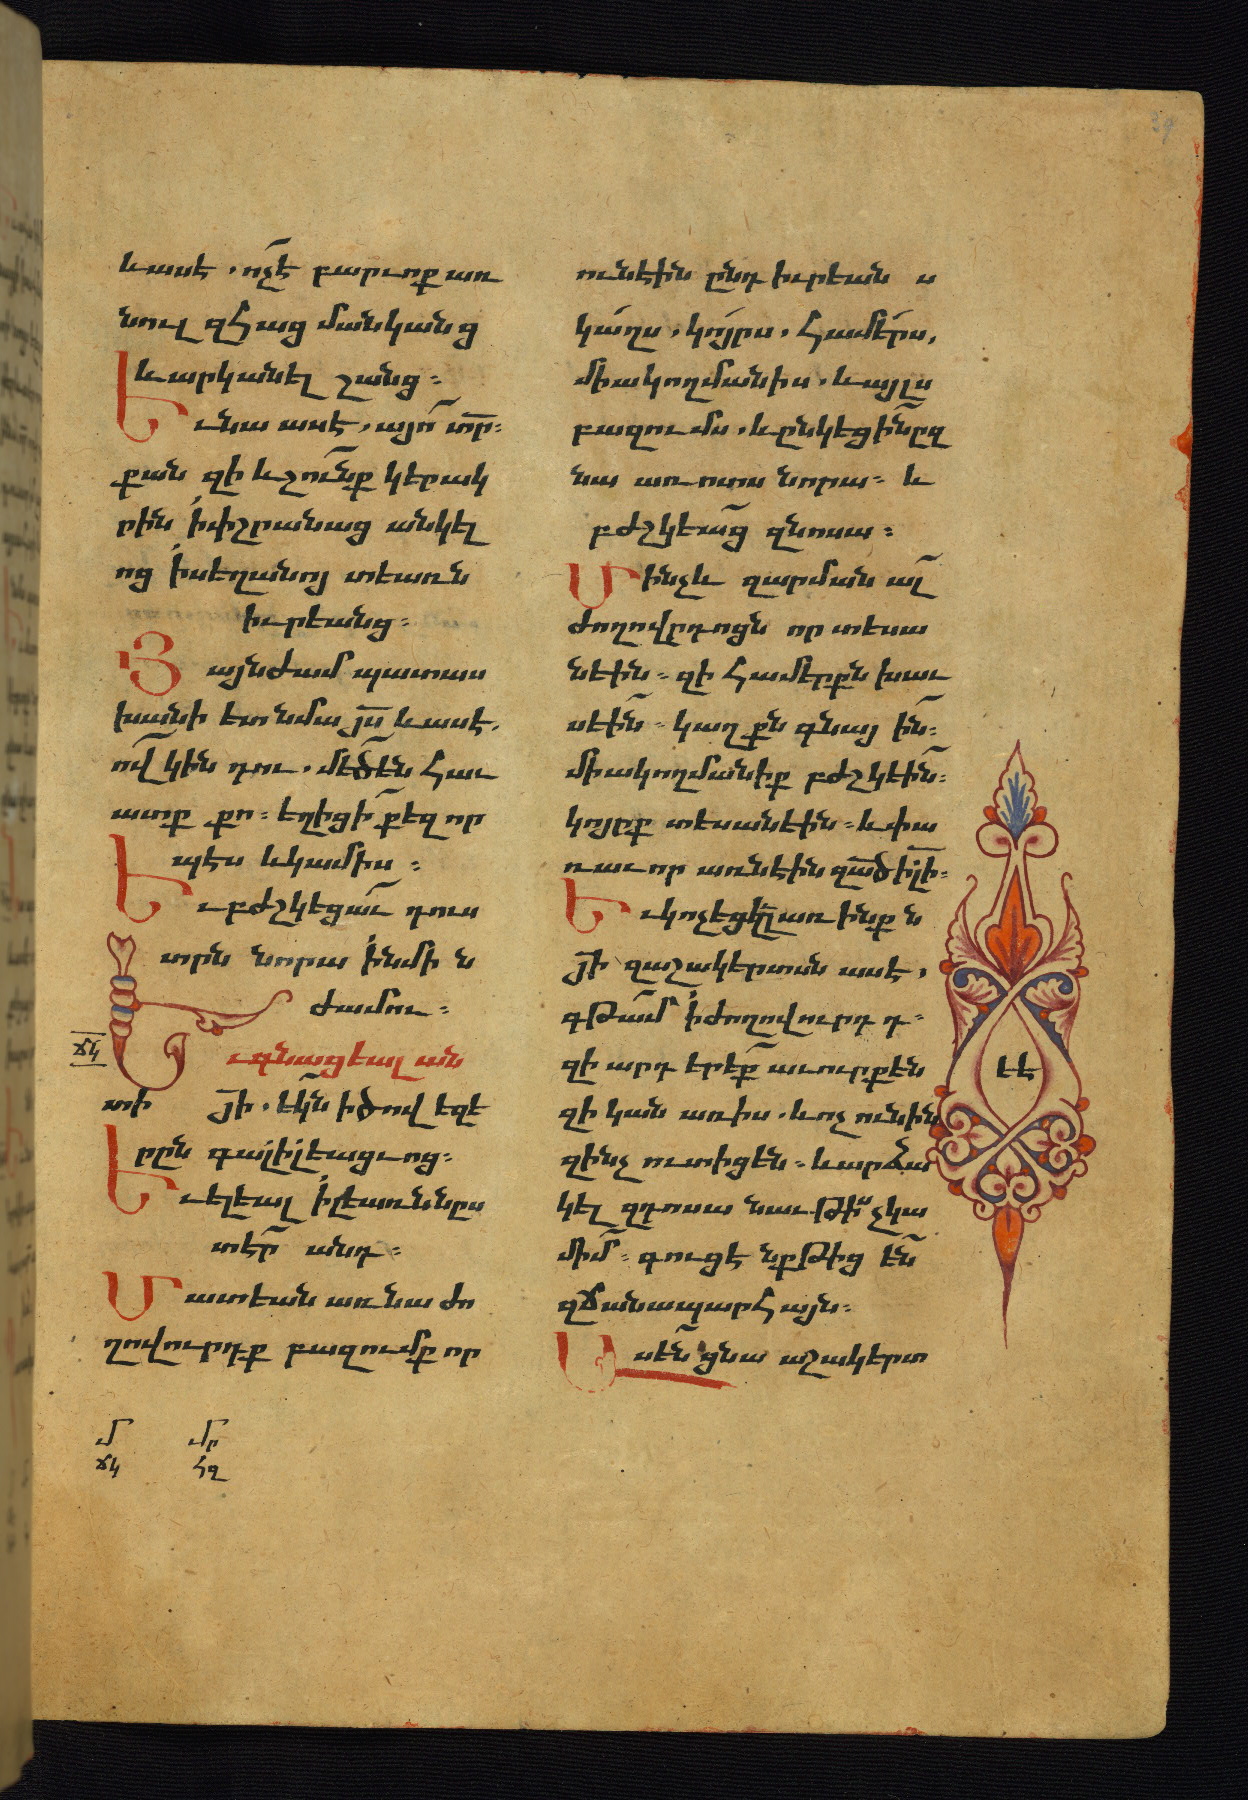 և ասէ . ոչ է բարւոք առ
նուլ զհաց մանկանց
և արկանել շանց ։
Ե ւ նա ասէ , այո տր ։
քան զի և շունք կերակ
րին ի փշրանաց անկել
ոց ի սեղանոյ տեառն
իւրեանց ։
Յ այնժամ պատաս
խանի ետ նմա յս և ասէ .
ով կին դու . մեծ են հաւ
ատք քո ։ եղիցի քեզ որ
պէս և կամիս ։
Ե ւ բժշկեցաւ դուս
տրն նորա ի նմին
ժամու ։
ճկ
Ե ւ գնացեալ ան
տի յի . եկն ի ծով եզե
րըն գալիլեացւոց ։
Ե ւ ելեալ ի լեառնն նըս
տէր անդ ։
Մ ատեան առ նա ժո
ղովուրդք բազումք որ
մ մր
ճկ հզ
ունէին ընդ իւրեանս
կաղս . կոյրս . համերս .
միակողմանիս . և այլս
բազումս . և ընկեցին զ
նա առ ոտս նորա ։ և
բժշկեաց զնոսա ։
Մ ինչև զարմանալ
ժողովրդոցն որ տեսա
նէին ։ զի համերքն խաւ
սէին ։ կաղքն գնային ։
միակողմանիք բժշկէին ։
կոյրք տեսանէին ։ և փա
ռաւոր առնէին զած իլի ։
Ե ւ կոչեցեալ առ ինքն
յի զաշակերտսն ասէ .
գթամ ի ժողովուրդ դ ։
զի արդ երեք աւուրք են
զի կան առ իս . և ոչ ունին
զինչ ուտիցեն ։ և արձա
կել զդոսա նաւթիս չկա
միմ ։ գուցէ նքթիցեն
զճանապարհայն ։
Ա սեն ցնա աշակերտ
ԷԷ